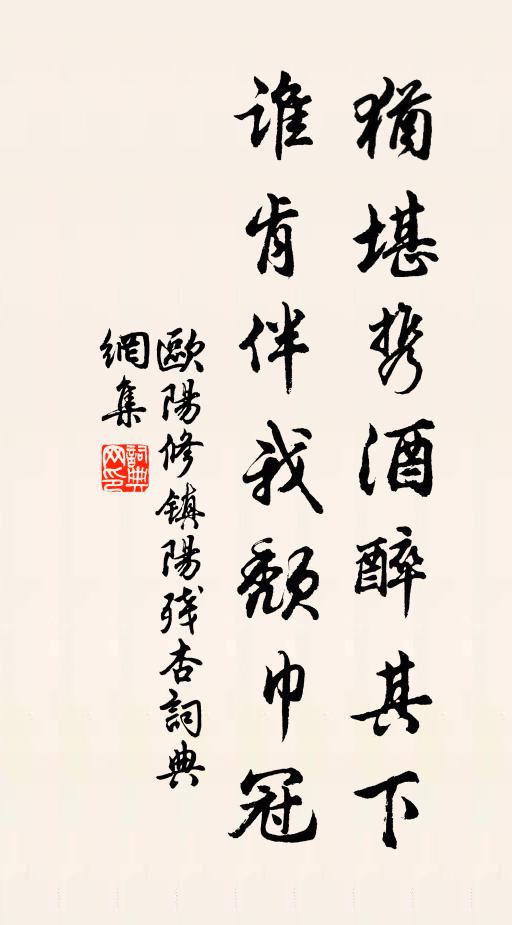 猶堪携酒醉其下
誰肯伴我頹巾冠
歐陽修鎮陽残杏詞典
網集
詞典网印